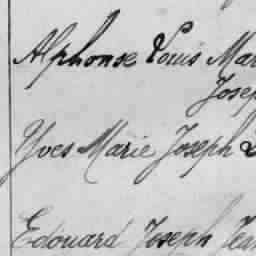 Alphonse Louis Mar
Josep
Yves Marie Joseph
Edouard Joseph Jean